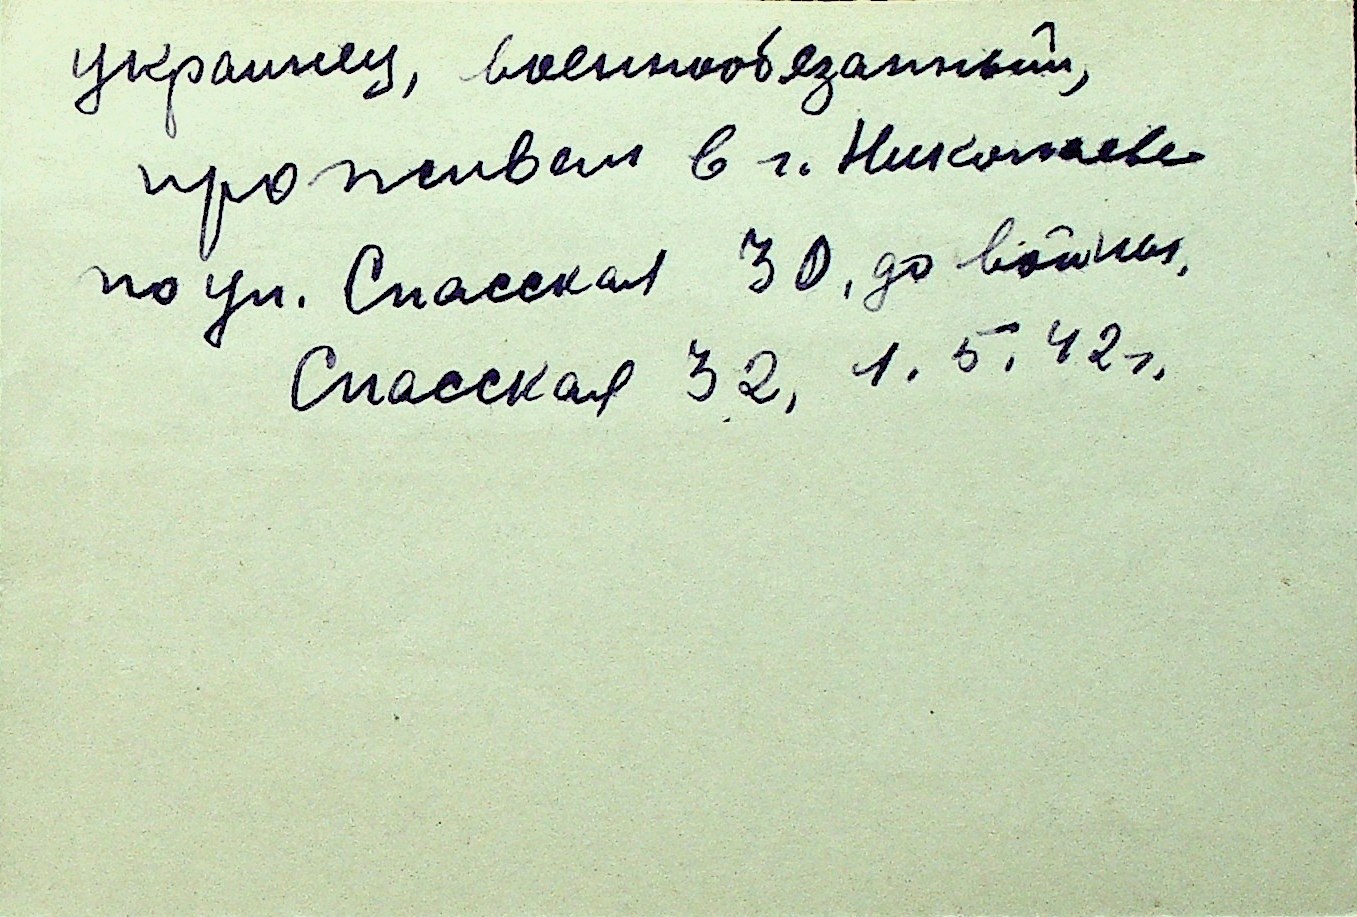 украинец, военнообязанный,
проживал в г. Николаеве
по ул. Спасская 30, до войны.
Спасская 32, 1.5.42 г.